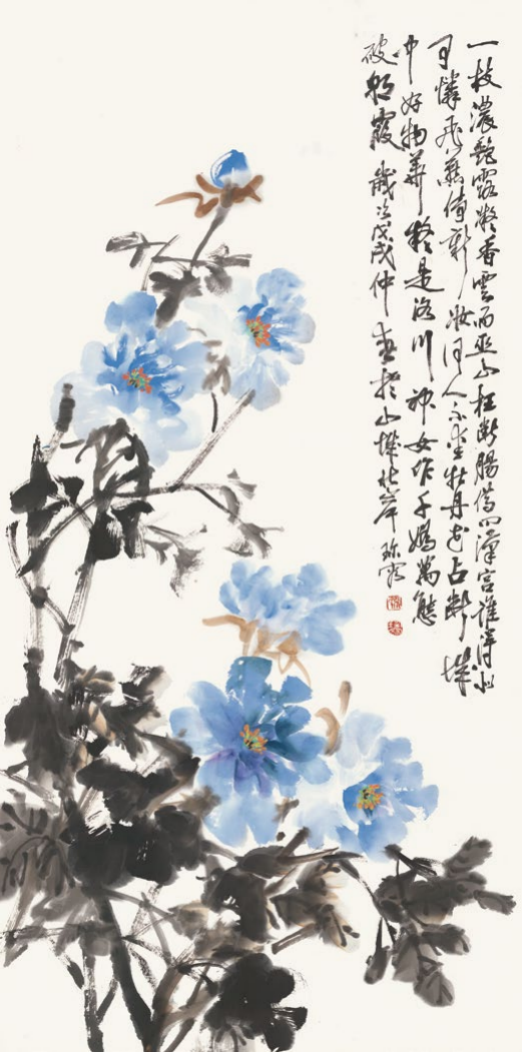 一枝濃艷露凝香雲雨巫山枉断腸借问漢宫谁得似
可憐飛燕倚新妝何人不爱牡丹花占断城
中好物華疑是洛川神女作千嬌萬態
破朝霞 歲次戊戌仲春於山城北岸